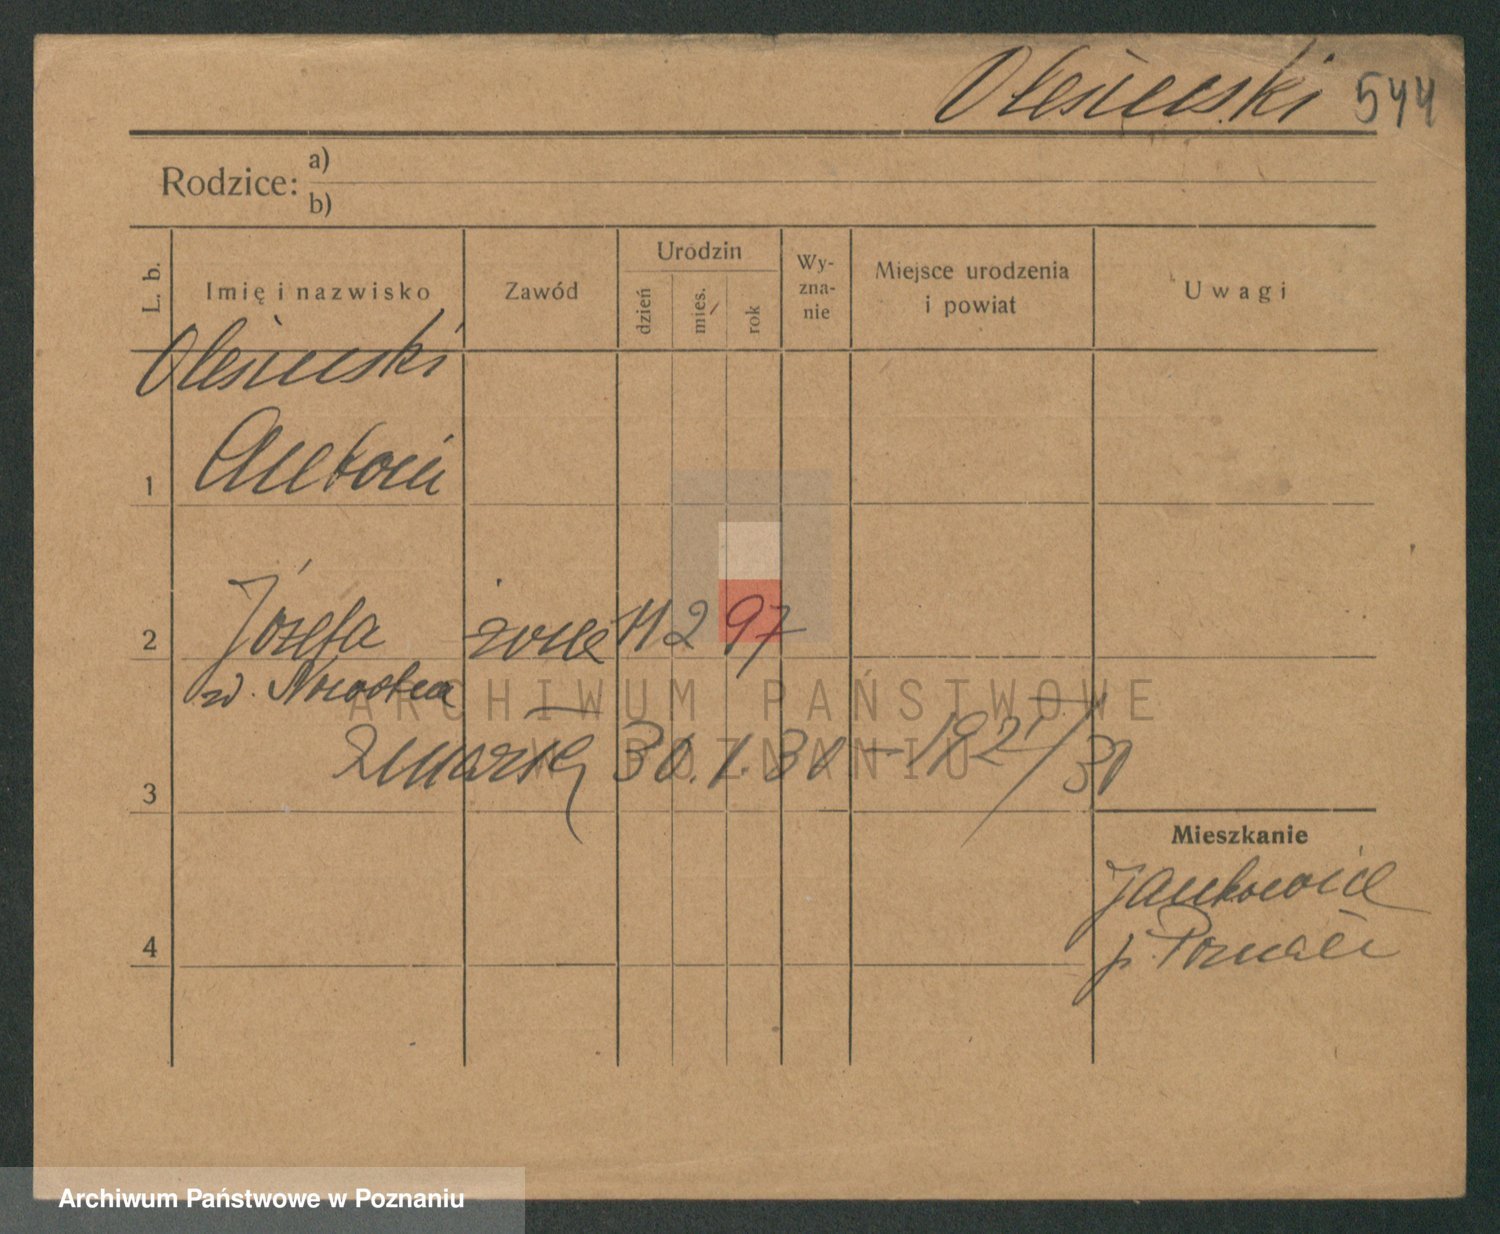 Olesiewski 544
Rodzice: a)
b)
L. b.
Imię i nazwisko
Zawód
Urodzin
dzień
mies.
rok
Wy-
zna-
nie
Miejsce urodzenia
i powiat
Uwagi
Olesiewski
1 Antoni
2 Józefa żona 11 2 97
zmarła 30.1.30 – 192 /30
3
Mieszkanie
4
p. Poznań
ARCHIWUM PAŃSTWOWE
W POZNANIU
Archiwum Państwowe w Poznaniu